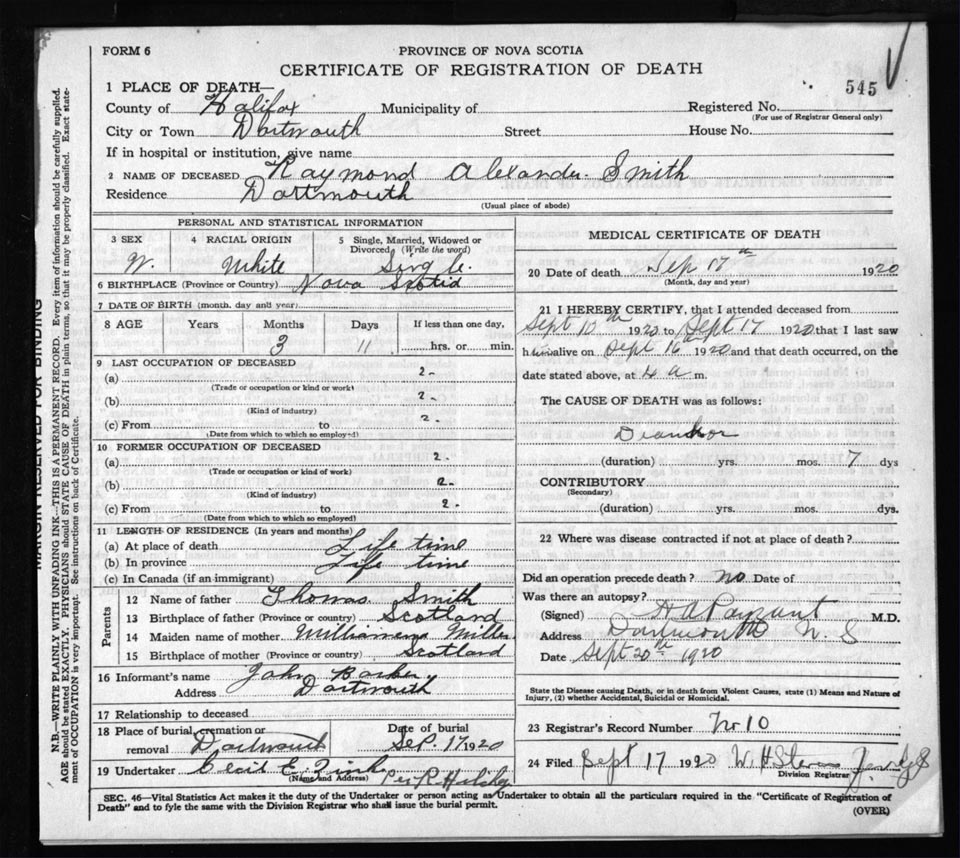 FORM 6
PROVINCE OF NOVA SCOTIA
CERTIFICATE OF REGISTRATION OF DEATH
545
1 PLACE OF DEATH—
County of Halifax Municipality of Registered No.
(For use of Registrar General only)
City or Town Dartmouth Street House No.
If in hospital or institution, give name
2 NAME OF DECEASED Raymond Alexander Smith
Residence Dartmouth
(Usual place of abode)
PERSONAL AND STATISTICAL INFORMATION
3 SEX 4 RACIAL ORIGIN 5 Single, Married, Widowed or Divorced (Write the word)
White Single
6 BIRTHPLACE (Province or Country) Nova Scotia
7 DATE OF BIRTH (month, day and year)
8 AGE Years Months Days If less than one day,
3 11 hrs. or min.
9 LAST OCCUPATION OF DECEASED
(a) 2-
(Trade or occupation or kind or work)
(b) 2-
(Kind of industry)
(c) From to 2-
(Date from which to which so employed)
10 FORMER OCCUPATION OF DECEASED
(a) 2-
(Trade or occupation or kind of work)
(b) 2-
(Kind of industry)
(c) From to 2-
(Date from which to which so employed)
11 LENGTH OF RESIDENCE (In years and months)
(a) At place of death Life time
(b) In province Life time
(c) In Canada (if an immigrant)
Parents
12 Name of father Thomas Smith
13 Birthplace of father (Province or country) Scotland
14 Maiden name of mother Williamena Miller
15 Birthplace of mother (Province or country) Scotland
16 Informant's name John
Address Dartmouth
17 Relationship to deceased
18 Place of burial, cremation or removal Dartmouth
Date of burial Sep. 17 1920
19 Undertaker Cecil E. Zink Per R
(Name and Address)
MEDICAL CERTIFICATE OF DEATH
20 Date of death Sep 17th 1920
(Month, day and year)
21 I HEREBY CERTIFY, that I attended deceased from
Sept 10th 1920 to Sept 17 1920 that I last saw
him alive on Sept 16th 1920 and that death occurred, on the
date stated above, at 4 a m.
The CAUSE OF DEATH was as follows:
(duration) yrs. mos. 7 dys
CONTRIBUTORY
(Secondary)
(duration) yrs. mos. dys.
22 Where was disease contracted if not at place of death?
Did an operation precede death? no Date of
Was there an autopsy?
(Signed) H A Payzant M.D.
Address Dartmouth N. S
Date Sept 20th 1920
State the Disease causing Death, or in death from Violent Causes, state (1) Means and Nature of
Injury, (2) whether Accidental, Suicidal or Homicidal.
23 Registrar's Record Number No 10
24 Filed Sept 17 1920 W. H.
Division Registrar
SEC. 46—Vital Statistics Act makes it the duty of the Undertaker or person acting as Undertaker to obtain all the particulars required in the "Certificate of Registration of
Death" and to fyle the same with the Division Registrar who shall issue the burial permit.
(OVER)
MARGIN RESERVED FOR BINDING
N.B.—WRITE PLAINLY WITH UNFADING INK—THIS IS A PERMANENT RECORD. Every item of information should be carefully supplied.
AGE should be stated EXACTLY. PHYSICIANS should STATE CAUSE OF DEATH in plain terms, so that it may be properly classified. Exact state-
ment of OCCUPATION is very important. See instructions on back of Certificate.